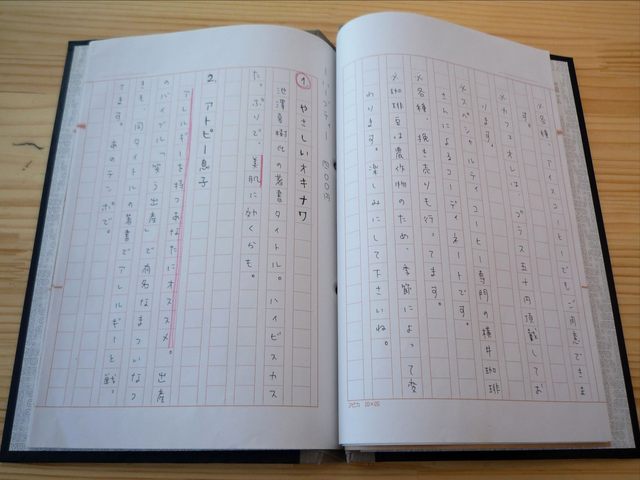 ※各種、アイスコーヒーでもご用意できま
す。
※カフェオレは、プラス五十円頂戴してお
ります。
※スペシャルティコーヒー専門の横井珈琲
さんによるコーディネートです。
※各種、挽き売りも行ってます。
※珈琲豆は農作物のため、季節によって変
わります。楽しみにして下さいね。
コピカ 20×20
ハーブティー 四〇〇円
1. やさしいオキナワ
池澤夏樹氏の著書タイトル。ハイビスカス
たっぷりで、美肌に効くかも。
2. アトピー息子
アレルギーを持つあなたにオススメ。出産
のバイブル「笑う出産」で有名なまついなつ
きも、同タイトルの著書でアレルギーと戦
てます。あのテンポで。